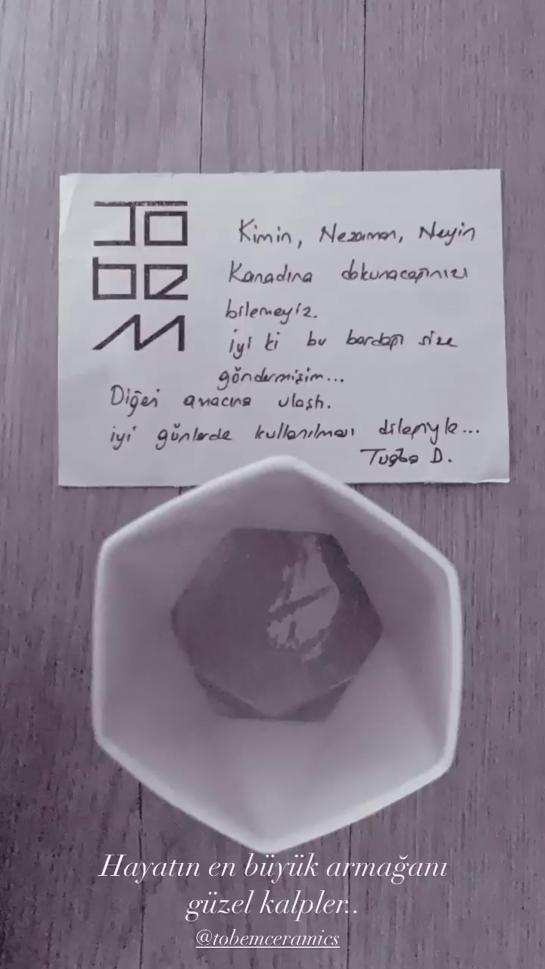 TO
be
M
Kimin, Nezaman, Neyin
Kanadına dokunacağınızı
bilemeyiz.
iyi ki bu bardağı size
göndermişim...
Diğeri amacına ulaştı.
iyi günlerde kullanılması dileğiyle...
Tuğba D.
Hayatın en büyük armağanı
güzel kalpler..
@tobemceramics